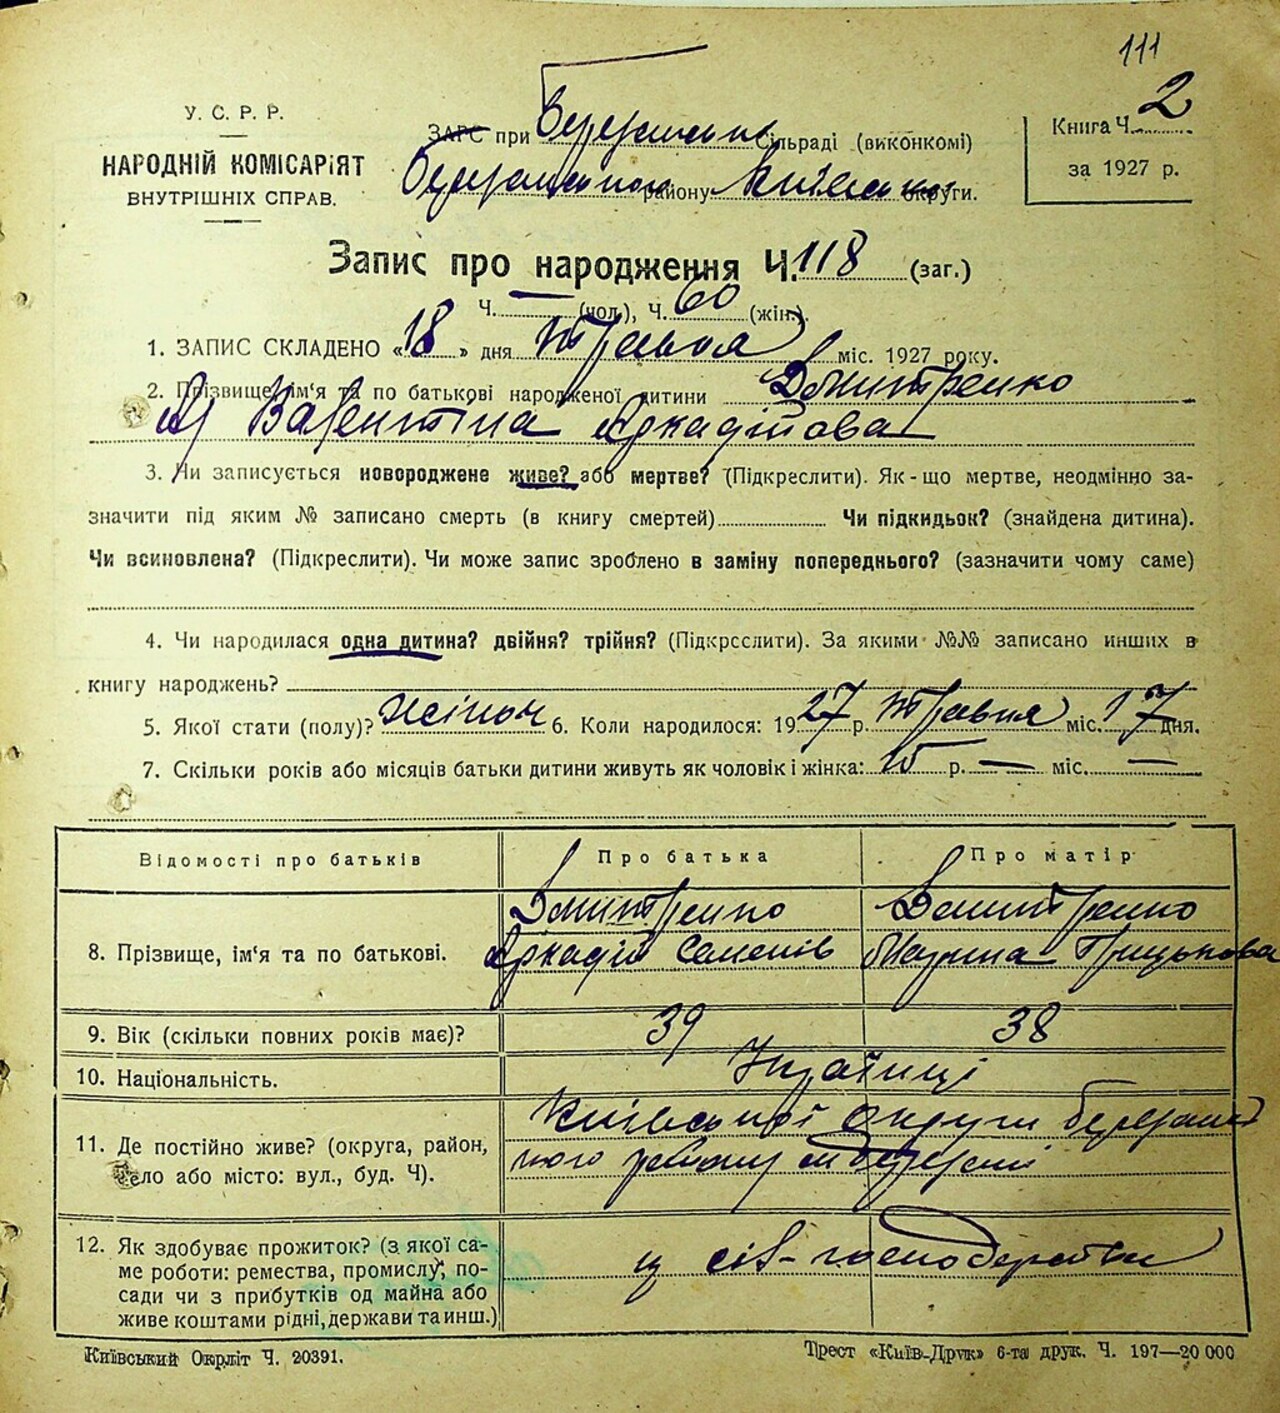 111
У. С. Р. Р.
НАРОДНІЙ КОМІСАРІЯТ
ВНУТРІШНІХ СПРАВ.
ЗАГС при Березанськ Сільраді (виконкомі)
Березанського району Київської округи.
Книга Ч. 2
за 1927 р.
Запис про народження Ч. 118 (заг.)
Ч. — (чол.), Ч. 60 (жін.).
1. ЗАПИС СКЛАДЕНО «18» дня травня міс. 1927 року.
2. Прізвище, ім'я та по батькові народженої дитини Дмитренко
Валентіна Аркадійова
3. Чи записується новороджене живе? або мертве? (Підкреслити). Як-що мертве, неодмінно за-
значити під яким № записано смерть (в книгу смертей) Чи підкидьок? (знайдена дитина).
Чи всиновлена? (Підкреслити). Чи може запис зроблено в заміну попереднього? (зазначити чому саме)
4. Чи народилася одна дитина? двійня? трійня? (Підкрсслити). За якими №№ записано инших в
книгу народжень?
5. Якої стати (полу)? жіноч 6. Коли народилося: 1927 р. травня міс. 17 дня.
7. Скільки років або місяців батьки дитини живуть як чоловік і жінка: 15 р. — міс. —
Відомості про батьків Про батька Про матір
8. Прізвище, ім'я та по батькові. Дмитренко Аркадій Семенів Дмитренко Марина Грицькова
9. Вік (скільки повних років має)? 39 38
10. Національність. Українці
11. Де постійно живе? (округа, район, Київської округи Березансь
село або місто: вул., буд. Ч). кого району м Березані
12. Як здобуває прожиток? (з якої са-
ме роботи: ремества, промислу, по- із сіл-господарства
сади чи з прибутків од майна або
живе коштами рідні, держави та инш.)
Київський Окрліт Ч. 20391.
Трест «Київ-Друк» 6-та друк. Ч. 197—20 000